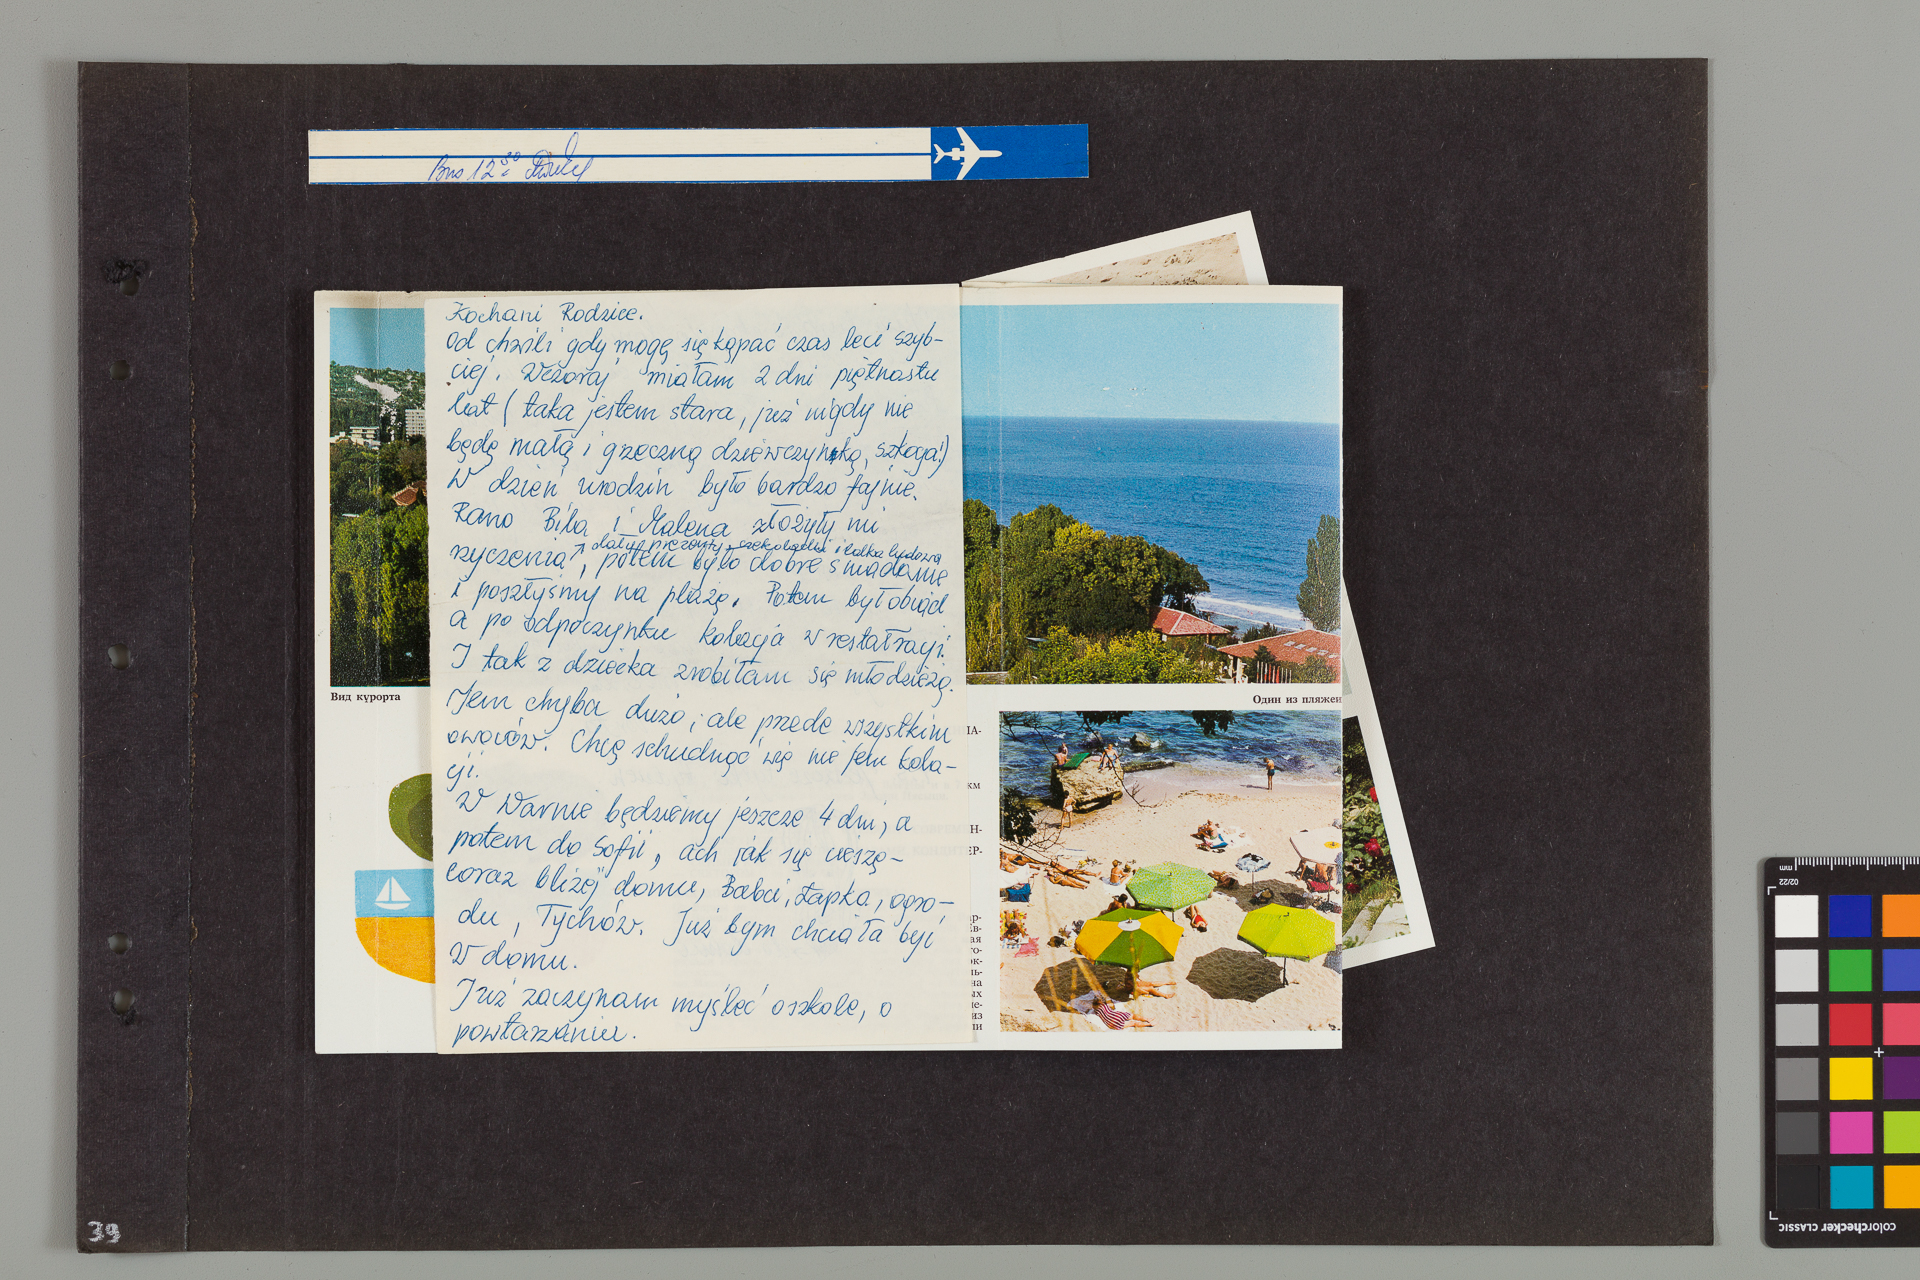 Bus 12 30
Kochani Rodzice.
Od chwili gdy mogę się kąpać czas leci szyb-
ciej. Wczoraj miałam 2 dni piętnastu
lat (taka jestem stara, już nigdy nie
będę małą i grzeczną dziewczynką, szkoga!)
W dzień urodzin było bardzo fajnie.
Rano Bila i Malena złożyły mi
rzyczenia, potem było dobre śniadanie
i poszłyśmy na plażę. Potem był obiad
a po odpoczynku kolacja w restałracji.
I tak z dziecka zrobiłam się młodzieżą.
Jem chyba dużo, ale przede wszystkim
owoców. Chcę schudnąć więc nie jem kola-
cji.
W Warnie będziemy jeszcze 4 dni, a
potem do Sofii, ach jak się cieszę-
coraz bliżej domu, Babci, Łapka, ogro-
du, Tychów. Już bym chciała być
w domu.
Już zaczynam myśleć o szkole, o
powtarzaniu.
Вид курорта
Один из пляжей
км
39
mm
02/22
colorchecker CLASSIC